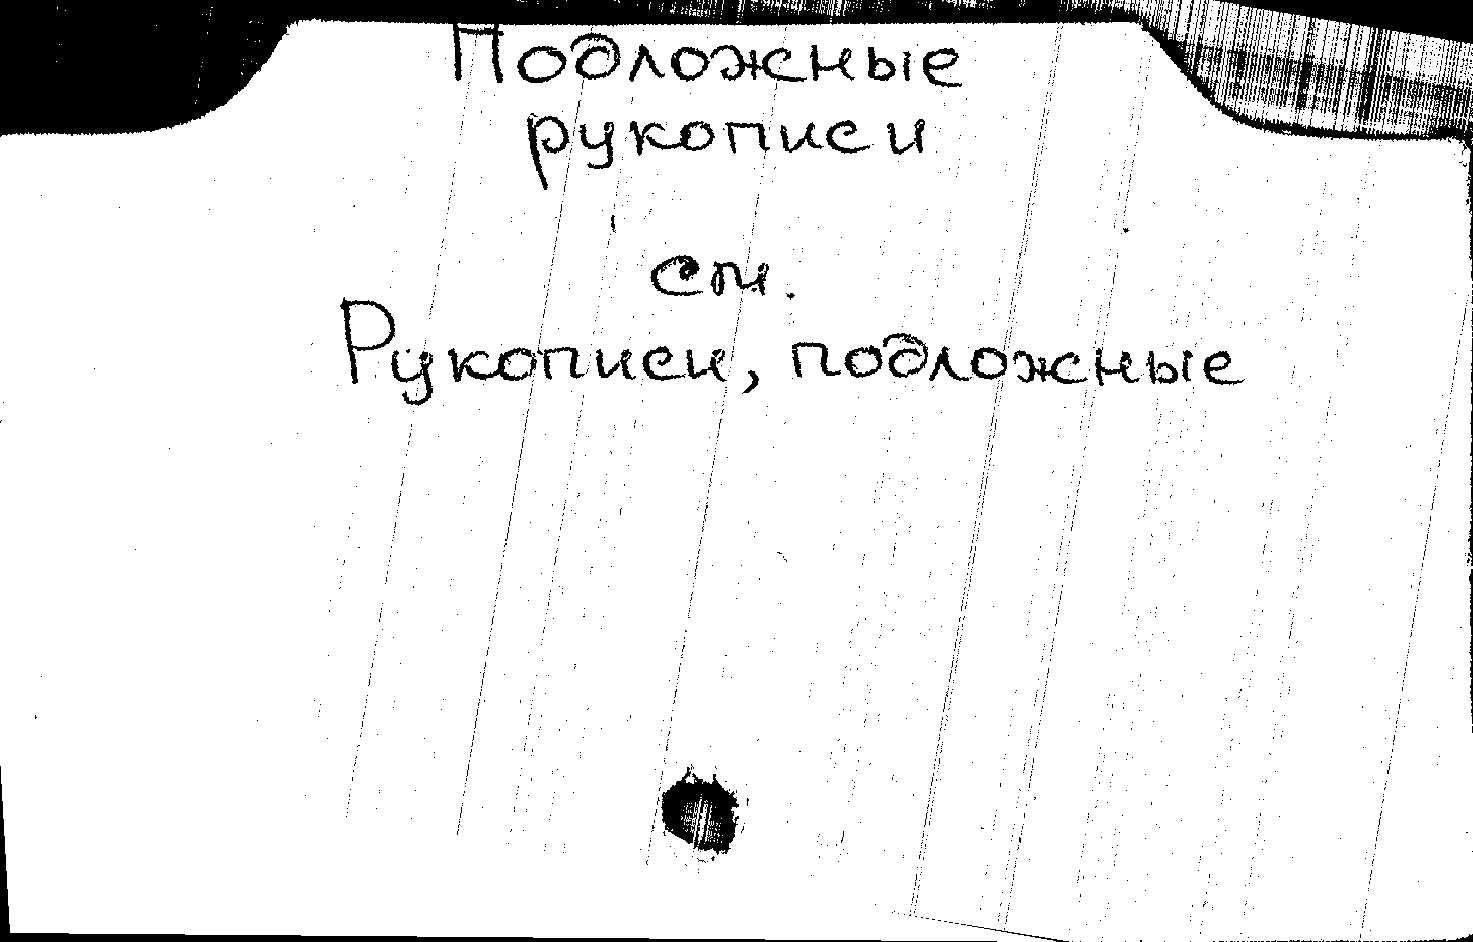 Подложные
рукописи
см.
Рукописи, подложные